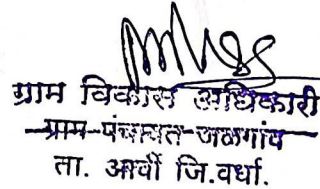 ग्राम विकास अधिकारी
ग्राम पंचायत जळगांव
ता. आर्वी जि.वर्धा.